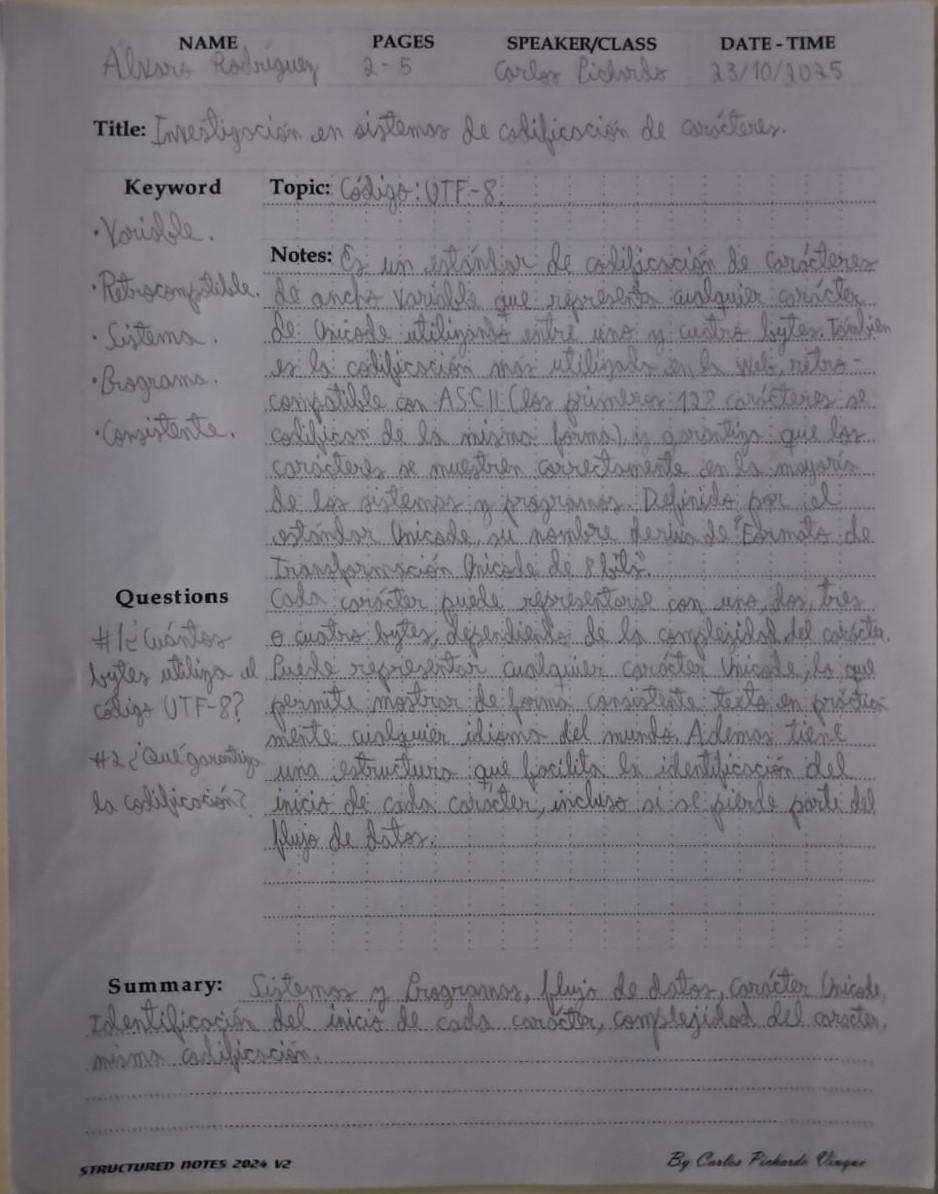 NAME PAGES SPEAKER/CLASS DATE - TIME
Alvaro Rodríguez 2-5 Carlos Pichardo 23/10/2025
Title: Investigación en sistemas de codificación de carácteres.
Keyword
• Variable.
• Retrocompatible.
• Sistema.
• Programa.
• Consistente.
Topic: Código: UTF-8.
Notes: Es un estándar de codificación de carácteres
de ancho variable que representa cualquier carácter
de Unicode utilizando entre uno y cuatro bytes. También
es la codificación más utilizada en la web, retro-
compatible con ASCII (los primeros 128 carácteres se
codifican de la misma forma), y garantiza que los
carácteres se muestren correctamente en la mayoría
de los sistemas y programas. Definido por el
estándar Unicode, su nombre deriva de "Formato de
Transformación Unicode de 8 bits".
Cada carácter puede representarse con uno, dos, tres
o cuatro bytes, dependiendo de la complejidad del carácter.
Puede representar cualquier carácter Unicode, lo que
permite mostrar de forma consistente texto en práctica-
mente cualquier idioma del mundo. Ademas tiene
una estructura que facilita la identificación del
inicio de cada carácter, incluso si se pierde parte del
flujo de datos.
Questions
#1 ¿Cuántos
bytes utiliza el
código UTF-8?
#2 ¿Qué garantiza
la codificación?
Summary: Sistemas y Programas, flujo de datos, carácter Unicode,
Identificación del inicio de cada carácter, complejidad del carácter,
misma codificación.
STRUCTURED NOTES 2024 V2
By Carlos Pichardo Vinque